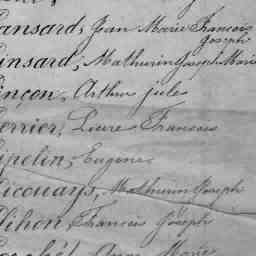 ansard, Jean Marie François
Joseph
insard, Mathurin Joseph Marie
inçon, Arthur jules
errier, Pierre François
ipelin, Eugène
icouays, Mathurin Joseph
lihon, Francis Joseph
Marie